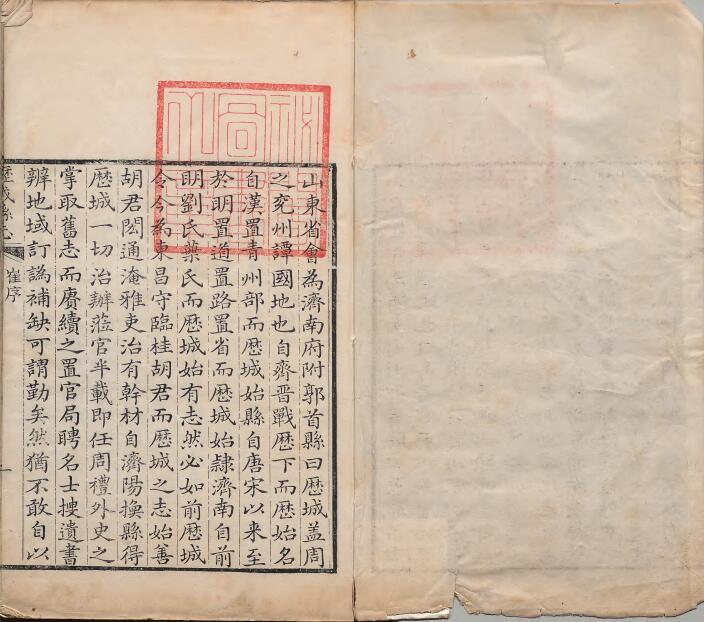 山東省會為濟南府附郭首縣曰歷城盖周
之兖州譚國地也自齊晉戰歷下而歷始名
自漢置青州部而歷城始縣自唐宋以來至
於明置道置路置省而歷城始隷濟南自前
明劉氏葉氏而歷城始有志然必如前歷城
令今為東昌守臨桂胡君而歷城之志始善
胡君閎通淹雅吏治有幹材自濟陽換縣得
歷城一切治辦蒞官半載即任周禮外史之
掌取舊志而賡續之置官局聘名士捜遺書
辨地域訂譌補缺可謂勤矣然猶不敢自以
歷城縣志
崔序
一